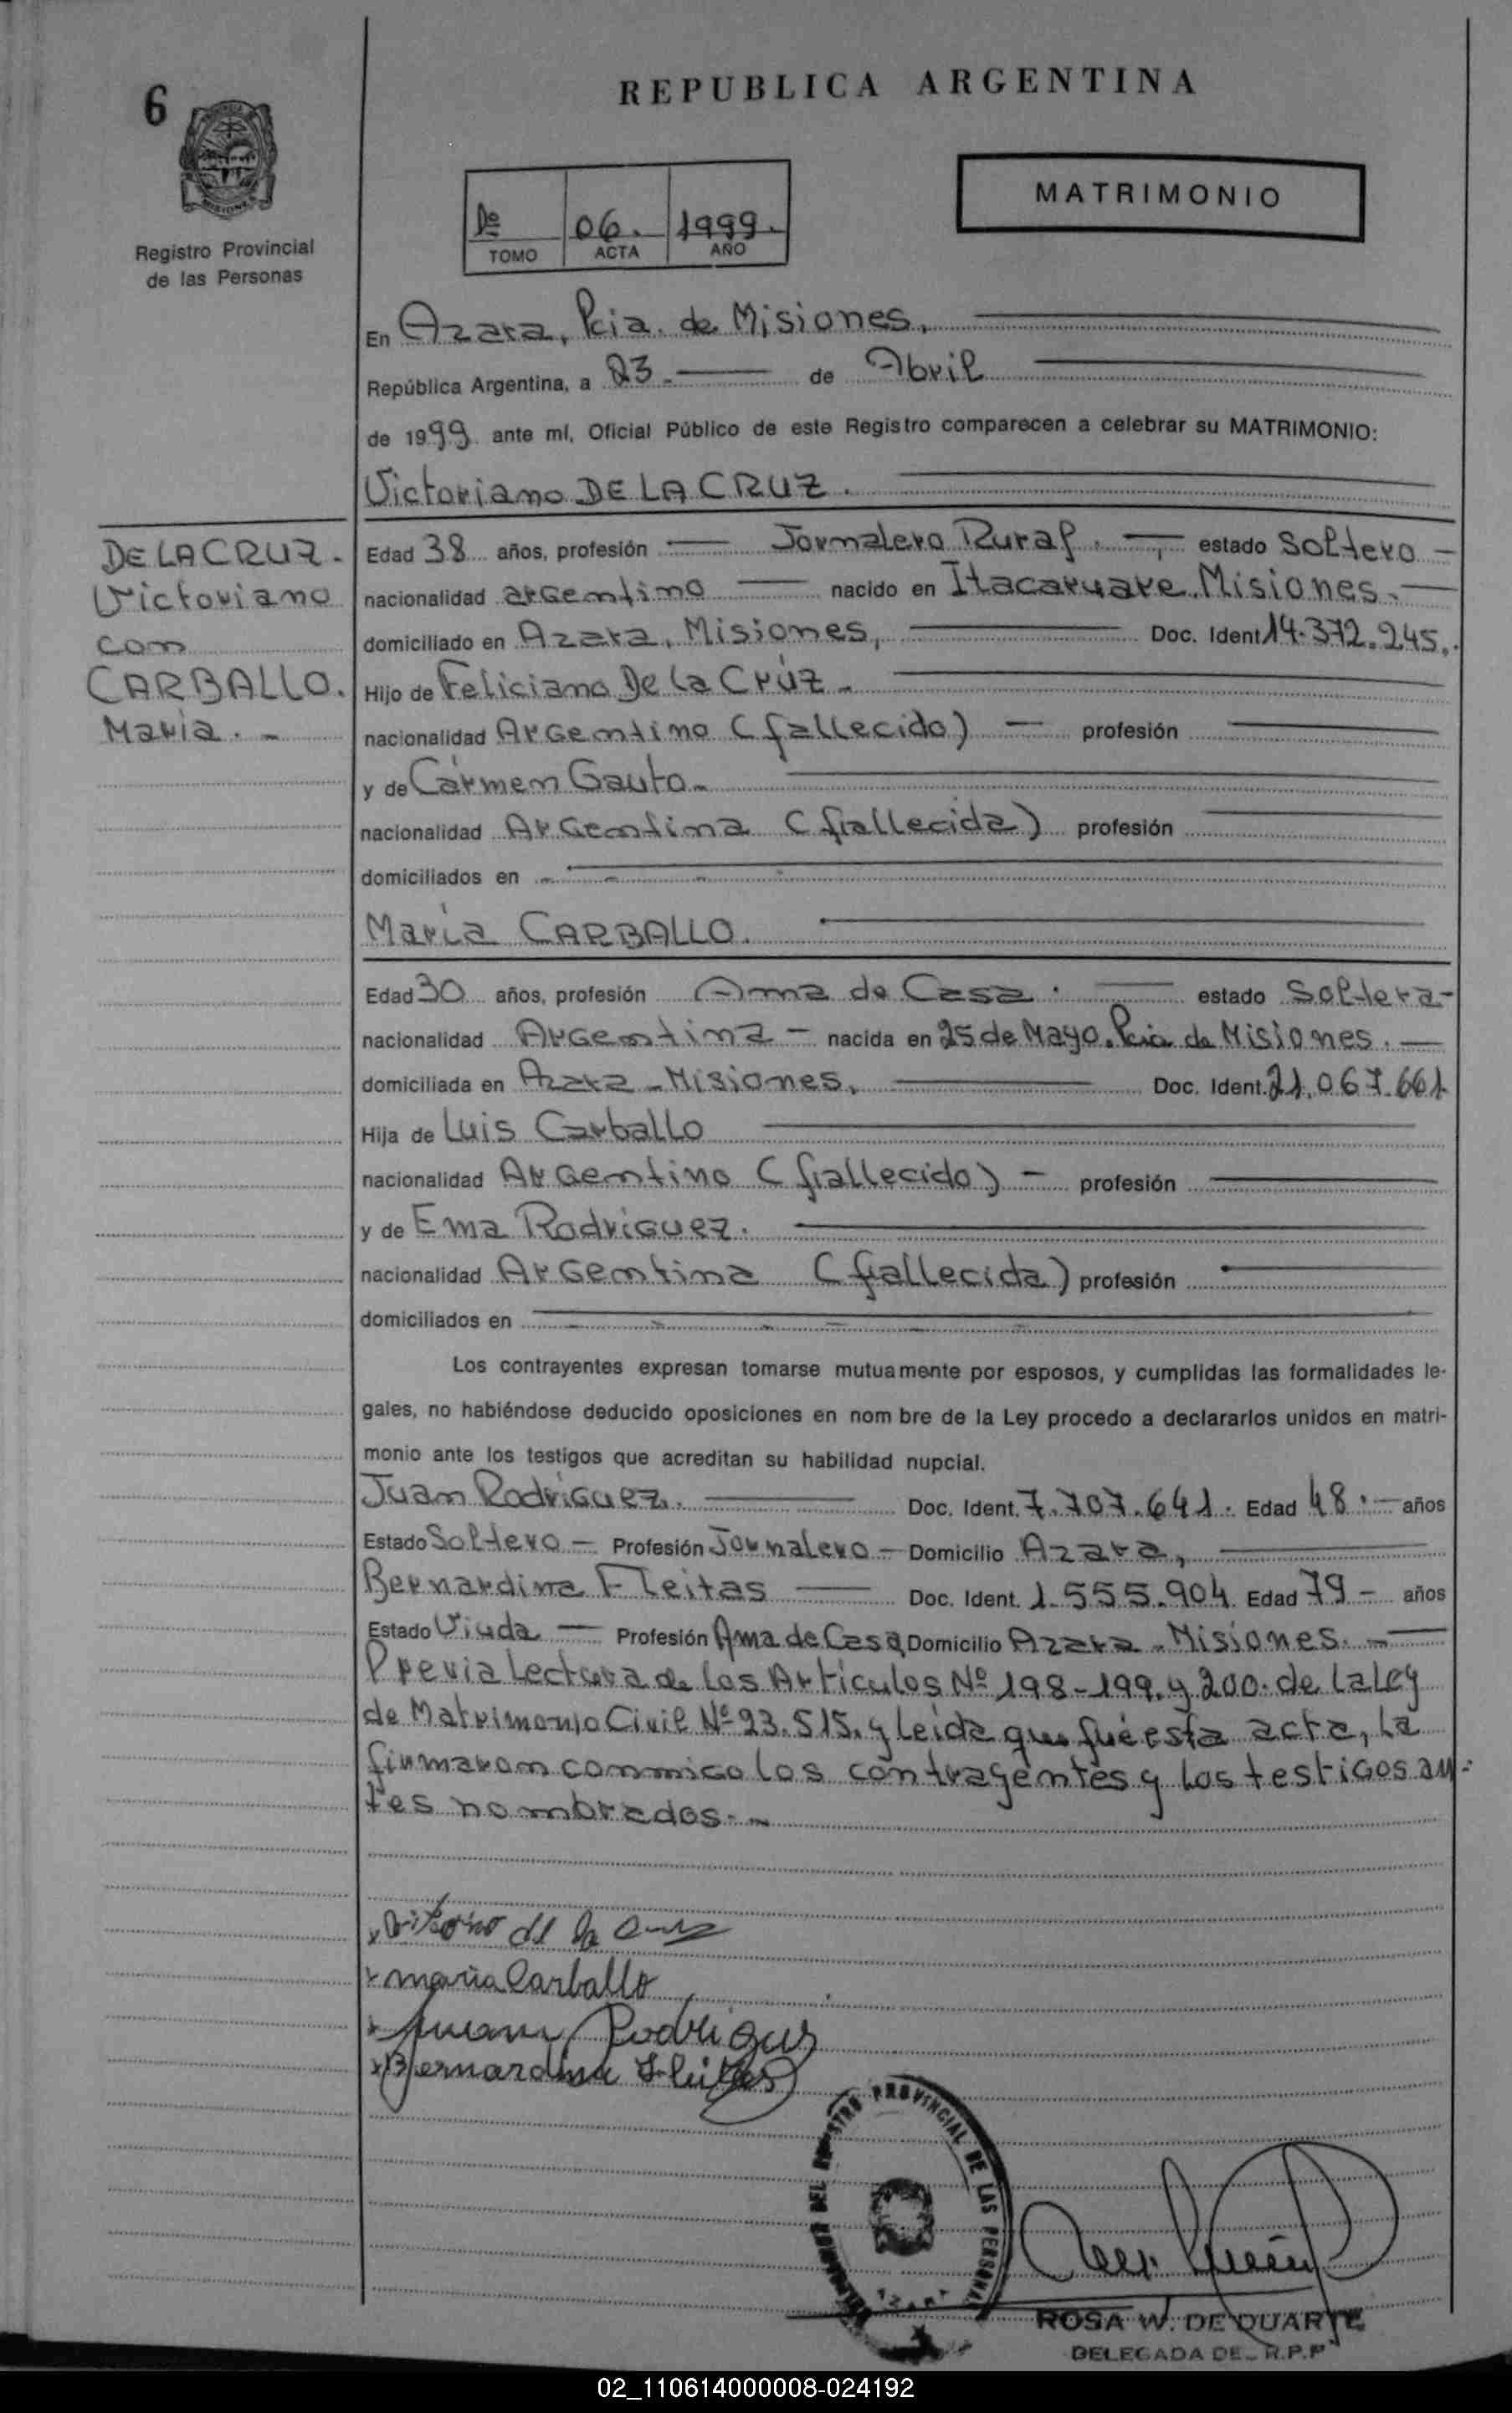 6
REPUBLICA ARGENTINA
Registro Provincial
de las Personas
1º 06. 1999.
TOMO ACTA AÑO
MATRIMONIO
En Azara, Pcia. de Misiones,
República Argentina, a 23.- de Abril
de 1999. ante mí, Oficial Público de este Registro comparecen a celebrar su MATRIMONIO:
Victoriano DE LA CRUZ.
DE LA CRUZ.
Victoriano
con
CARBALLO.
María. -
Edad 38 años, profesión Jornalero Rural. estado Soltero -
nacionalidad argentino nacido en Itacaruare. Misiones.
domiciliado en Azara, Misiones, Doc. Ident. 14.372.245.
Hijo de Feliciano De la Cruz -
nacionalidad Argentino (fallecido) - profesión
y de Cármen Gauto -
nacionalidad Argentina (fallecida) profesión
domiciliados en
María CARBALLO.
Edad 30 años, profesión Ama de Casa. estado Soltera -
nacionalidad Argentina - nacida en 25 de Mayo. Pcia de Misiones.
domiciliada en Azara - Misiones, Doc. Ident. 21.067.661
Hija de Luis Carballo
nacionalidad Argentino (fallecido) - profesión
y de Ema Rodríguez.
nacionalidad Argentina (fallecida) profesión
domiciliados en
Los contrayentes expresan tomarse mutuamente por esposos, y cumplidas las formalidades le-
gales, no habiéndose deducido oposiciones en nom bre de la Ley procedo a declararlos unidos en matri-
monio ante los testigos que acreditan su habilidad nupcial.
Juan Rodríguez. Doc. Ident. 7.707.641. Edad 48.- años
Estado Soltero - Profesión Jornalero - Domicilio Azara,
Bernardina Fleitas Doc. Ident. 1.555.904. Edad 79 - años
Estado Viuda - Profesión Ama de Casa Domicilio Azara - Misiones. -
Previa Lectura de los Artículos Nº 198-199. y 200. de la Ley
de Matrimonio Civil Nº 23.515. y leída que fué esta acta, la
firmaron conmigo los contrayentes y los testigos an-
tes nombrados. -
x Vitorino de la Cruz
x maria Carballo
x Juan Rodrigus
x Bernardina Fleitas
REGISTRO PROVINCIAL DE LAS PERSONAS
AZARA
ROSA W. DE DUARTE
DELEGADA DE_ R.P.P
02_110614000008-024192